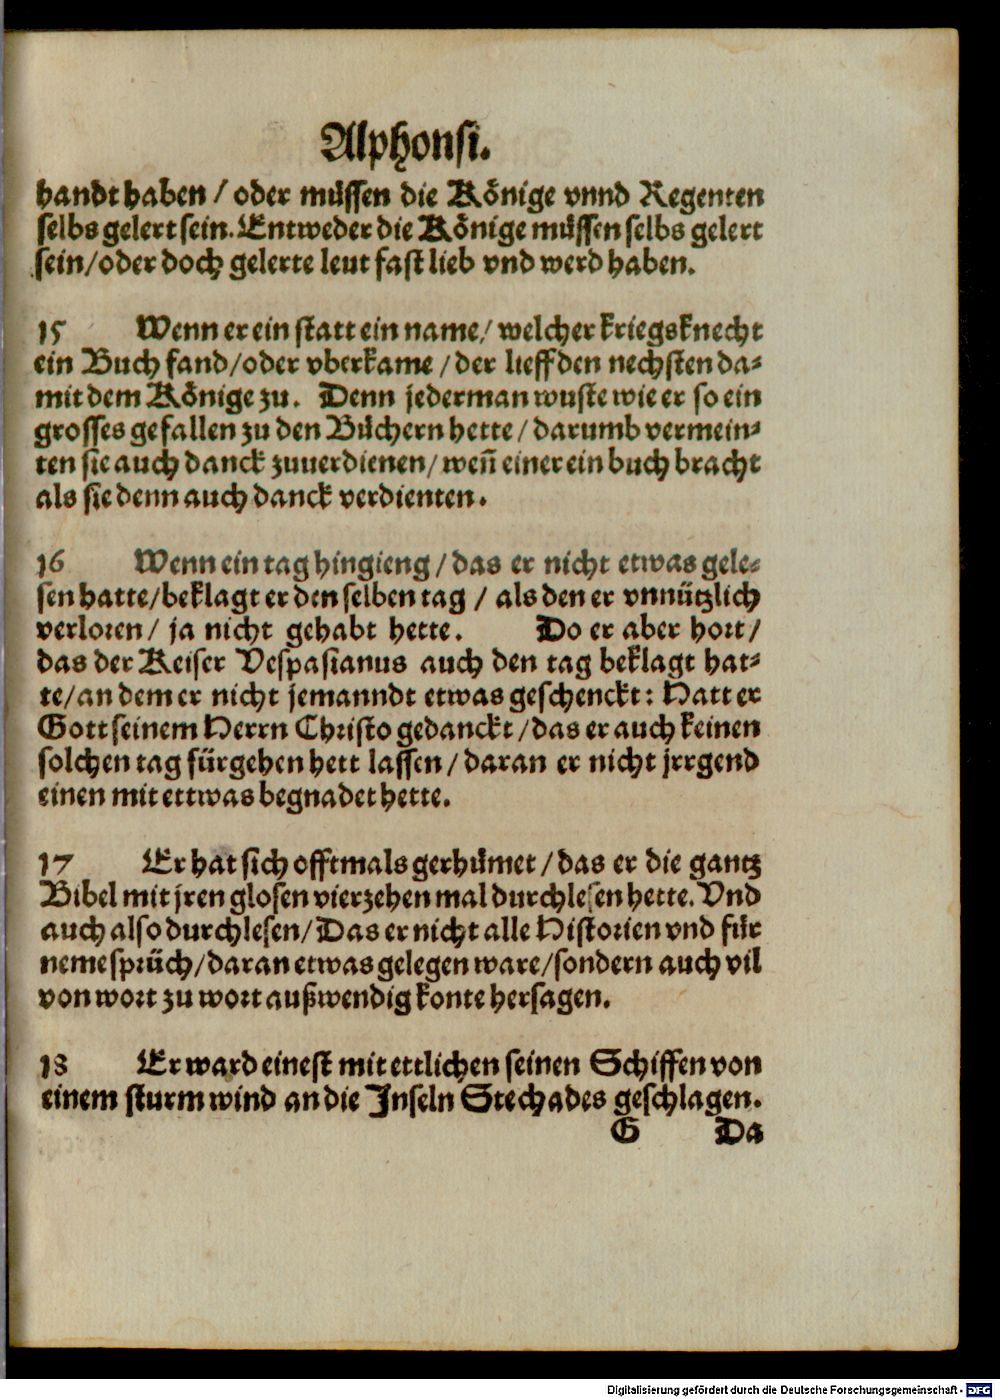 Alphonsi.
handthaben / oder müssen die Könige vnnd Regenten
selbs gelert sein. Entweder die Könige müssen selbs gelert
sein/oder doch gelerte leut fast lieb vnd werd haben.
15 Wenn er ein statt ein name/ welcher kriegsknecht
ein Buch fand/oder vberkame / der lieff den nechsten da-
mit dem Könige zu. Denn jederman wuste wie er so ein
grosses gefallen zu den Büchern hette / darumb vermein-
ten sie auch danck zuuerdienen/ weñ einer ein buch bracht
als sie denn auch danck verdienten.
16 Wenn ein tag hingieng / das er nicht etwas gele-
sen hatte/beklagt er den selben tag / als den er vnnützlich
verloren/ ja nicht gehabt hette. Do er aber hort/
das der Keiser Vespasianus auch den tag beklagt hat-
te/an dem er nicht jemanndt etwas geschenckt: Hatt er
Gott seinem Herrn Christo gedanckt /das er auch keinen
solchen tag fürgehen hett lassen/ daran er nicht jrrgend
einen mit ettwas begnadet hette.
17 Er hat sich offtmals gerhümet /das er die gantz
Bibel mit jren glosen vierzehen mal durchlesen hette. Vnd
auch also durchlesen/Das er nicht alle Historien vnd für
neme sprüch/daran etwas gelegen ware/sondern auch vil
von wort zu wort außwendig konte hersagen.
18 Er ward einest mit ettlichen seinen Schiffen von
einem sturm wind an die Inseln Stechades geschlagen.
G Da
Digitalisierung gefördert durch die Deutsche Forschungsgemeinschaft - DFG